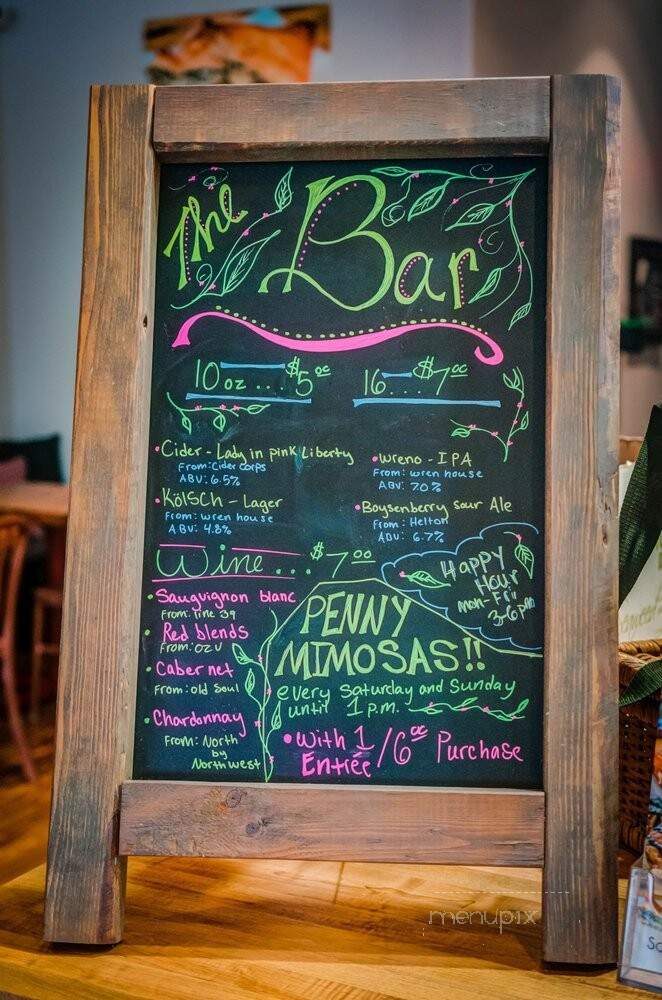 The Bar
10 oz ... $5 00
16 ... $7 00
• Cider - Lady in pink Liberty
From: Cider Corps
ABV: 6.5%
• KölSCH - Lager
From: wren house
ABV: 4.8%
• Wreno - IPA
From: wren house
ABV: 7.0%
• Boysenberry sour Ale
From: Helton
ABV: 6.7%
Wine ... $7 00
• Sauguignon blanc
From: Line 39
• Red blends
From: OZV
• Cabernet
From: old Soul
• Chardonnay
From: North
by
Northwest
Happy
Hour
mon-Fri
3-6pm
PENNY
MIMOSAS!!
every Saturday and Sunday
until 1 p.m.
• With 1 Entrée / 6 00 Purchase
menupix